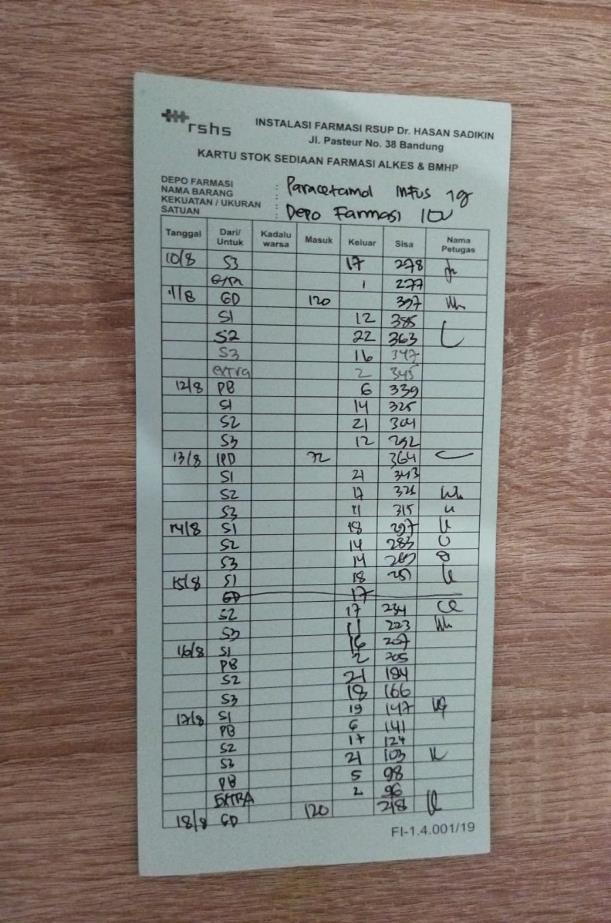 rshs
INSTALASI FARMASI RSUP Dr. HASAN SADIKIN
Jl. Pasteur No. 38 Bandung
KARTU STOK SEDIAAN FARMASI ALKES & BMHP
DEPO FARMASI
NAMA BARANG : Paracetamol Infus 1g
KEKUATAN / UKURAN :
SATUAN : Depo Farmasi
Tanggal Dari/ Untuk Kadalu warsa Masuk Keluar Sisa Nama Petugas
10/8 S3 17 278
extra 1 277
11/8 GD 120 397
S1 12 385
S2 22 363
S3 16 347
extra 2 345
12/8 PB 6 339
S1 14 325
S2 21 304
S3 12 292
13/8 IPD 72 364
S1 21 343
S2 17 326
S3 11 315
14/8 S1 18 297
S2 14 283
S3 14 269
15/8 S1 18 251
GD 17
S2 17 234
S3 11 223
16/8 S1 16 207
PB 2 205
S2 21 184
S3 18 166
17/8 S1 19 147
PB 6 141
S2 17 124
S3 21 103
PB 5 98
EXTRA 2 96
18/8 GD 120 218
FI-1.4.001/19